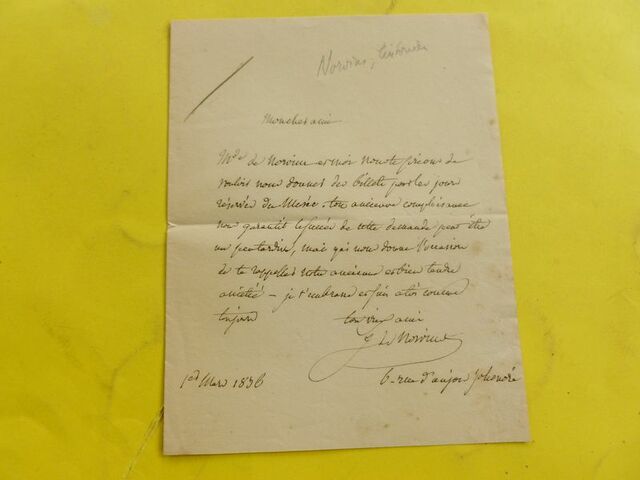 Norvins,
Mon cher ami
Mde de Norvins et moi nous te prions de
vouloir nous donner des billets pour les jours
réservés du Musée. ton ancienne complaisance
nous garantit le succès de cette demande peut être
un peu tardive, mais qui nous donne l'occasion
de te rappeller notre ancienne et bien tendre
amitié – je t'embrasse et suis à toi comme
toujours
ton vieil ami
J. de Norvins
1er Mars 1836
6 - rue d'anjou St honoré